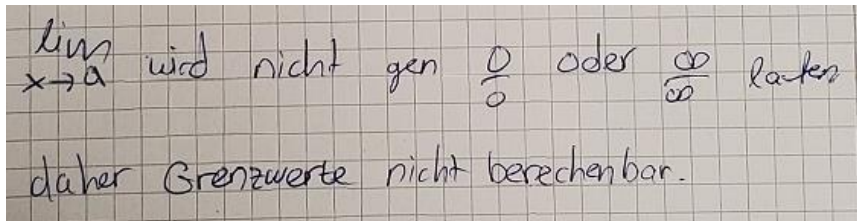 lim x→a wird nicht gen 0/0 oder ∞/∞ laufen
daher Grenzwerte nicht berechenbar.